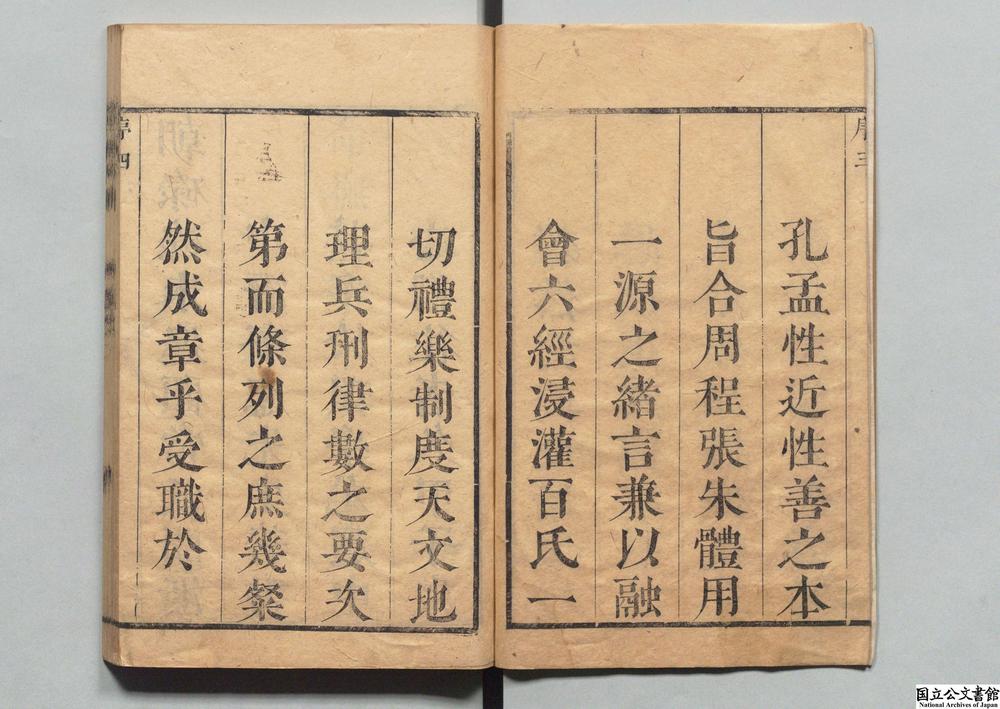 序三
孔孟性近性善之本
旨合周程張朱體用
一源之緒言兼以融
會六經浸灌百氏一
切禮樂制度天文地
理兵刑律數之要次
第而條列之庶幾粲
然成章乎受職於
序四
国立公文書館
National Archives of Japan